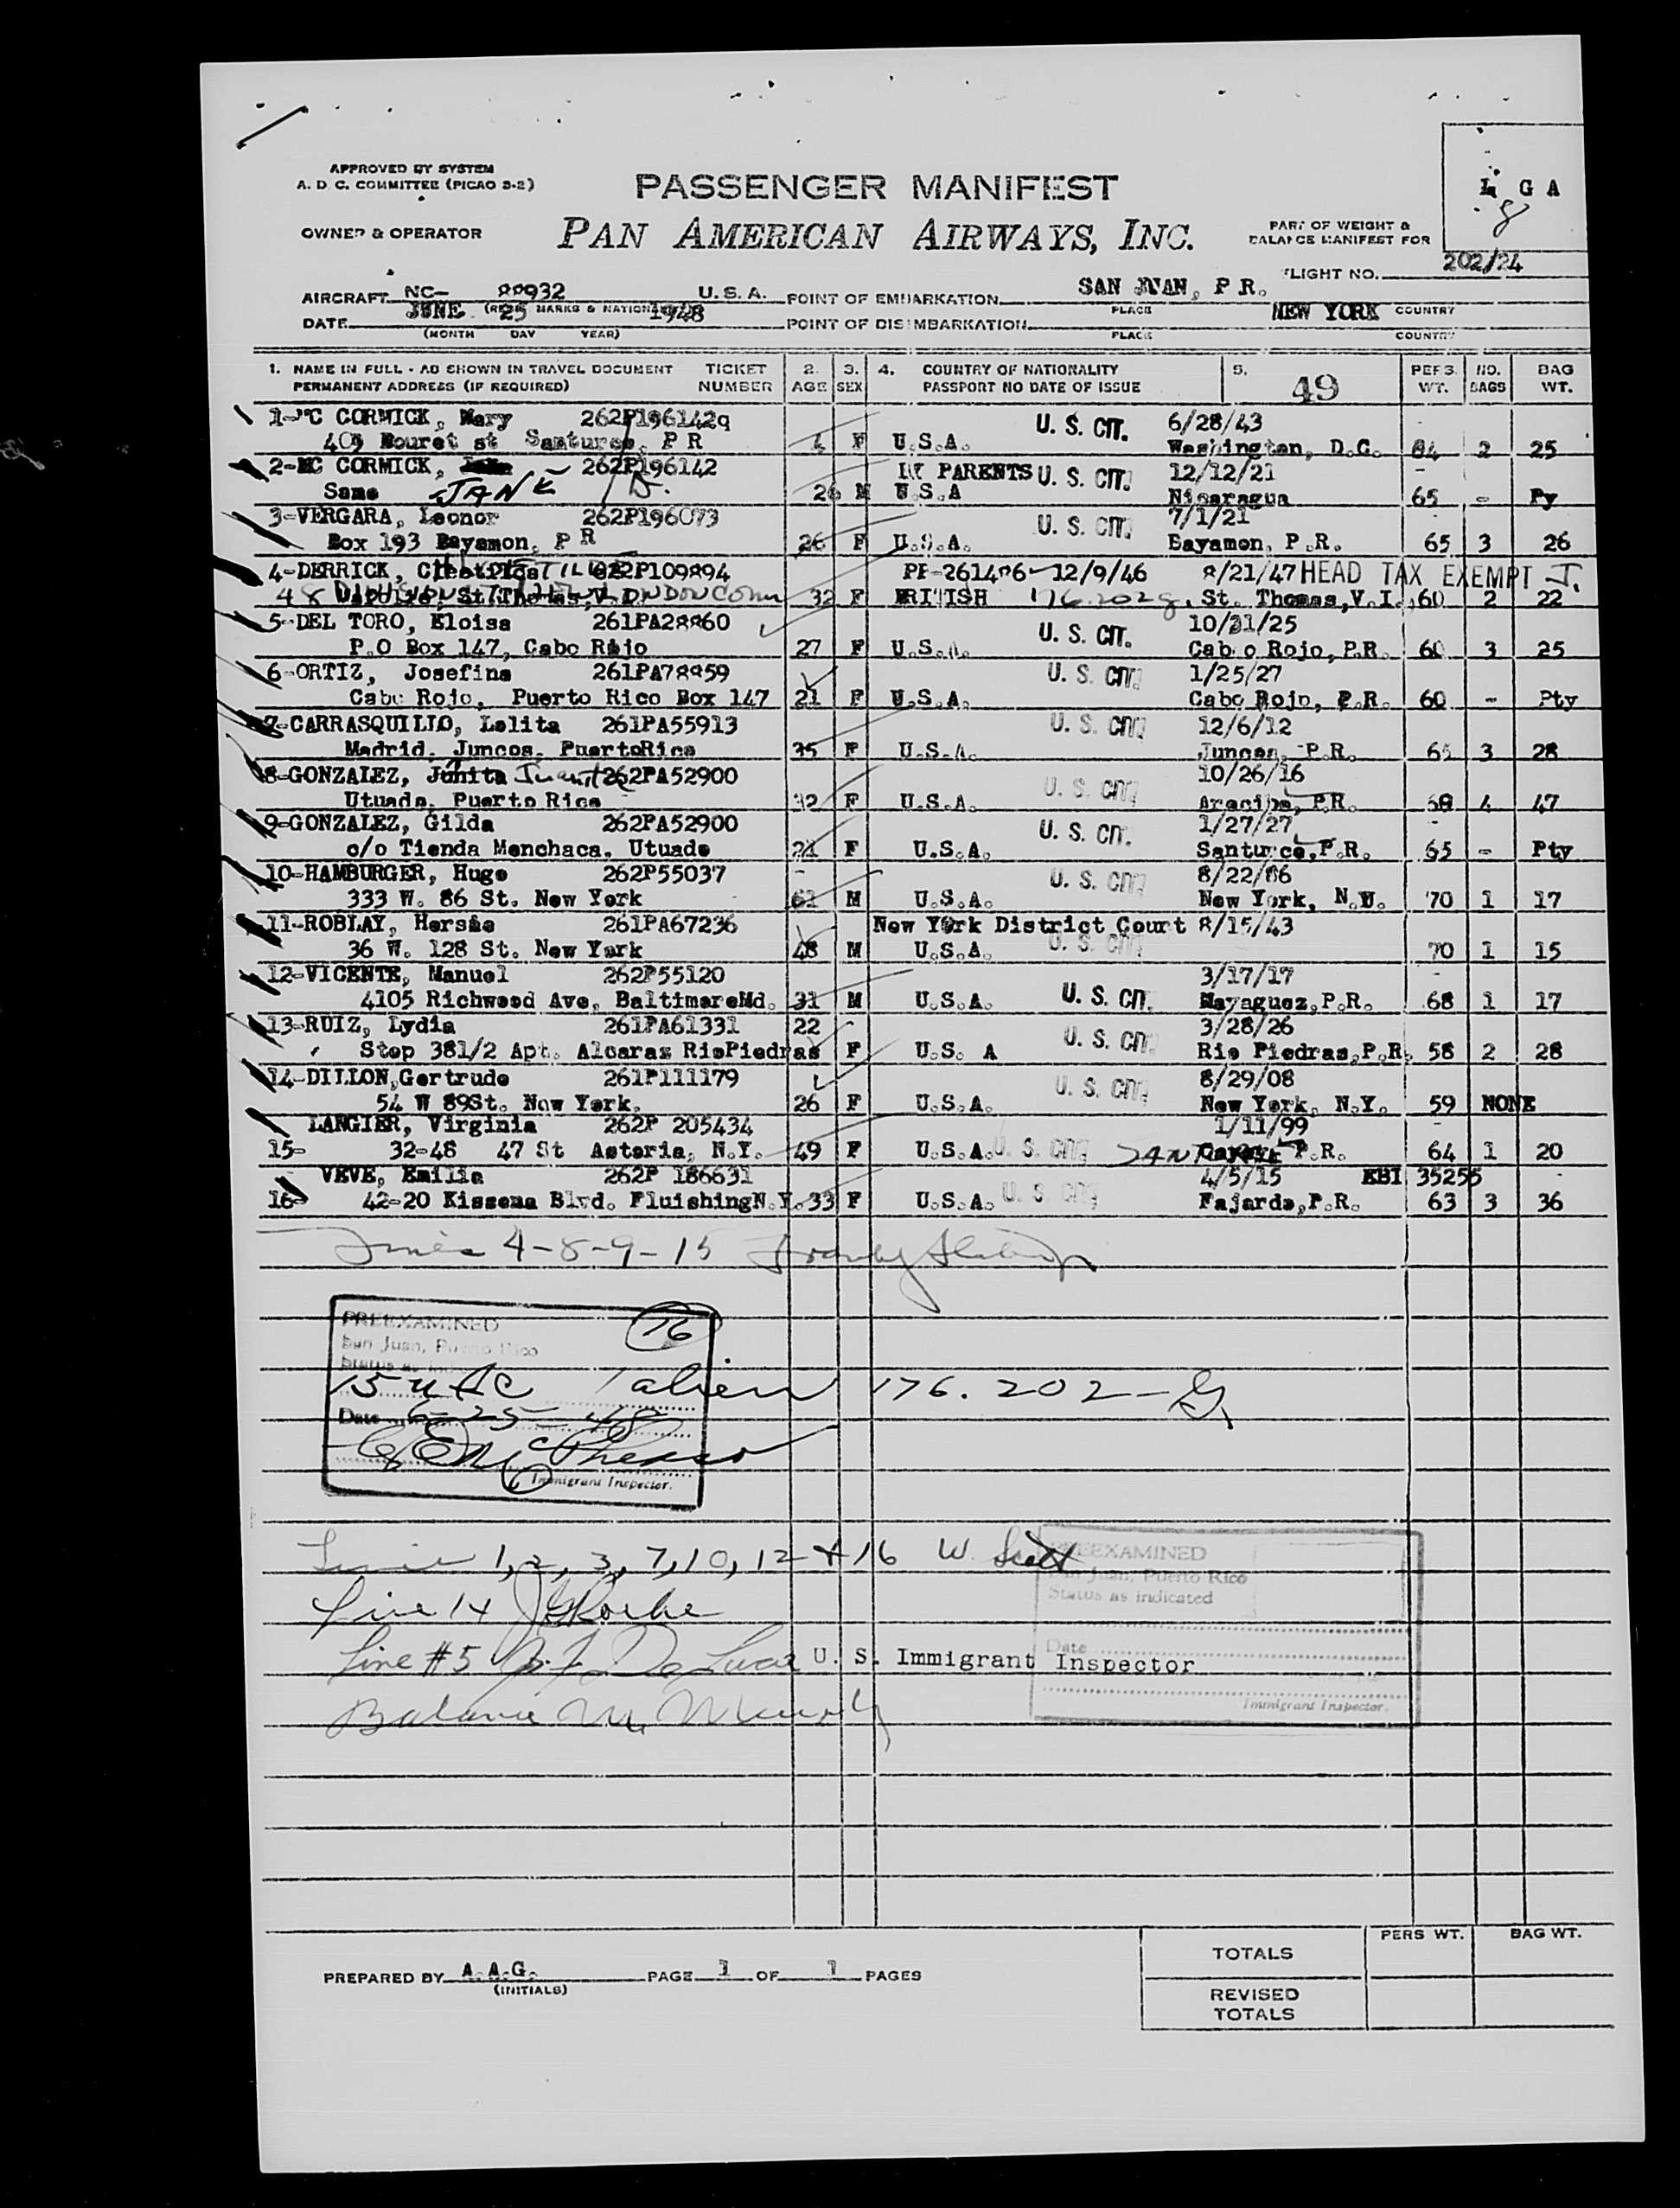 APPROVED BY SYSTEM
A. D. C. COMMITTEE (PICAO 3-2)
PASSENGER MANIFEST
L G A
8
OWNER & OPERATOR
PAN AMERICAN AIRWAYS, INC.
PART OF WEIGHT &
BALANCE MANIFEST FOR
FLIGHT NO. 202/24
AIRCRAFT NC- 88932 U. S. A. POINT OF EMBARKATION SAN JUAN, P R.
(REG. MARKS & NATIONALITY) PLACE COUNTRY
DATE JUNE 25 1948 POINT OF DISEMBARKATION NEW YORK
(MONTH DAY YEAR) PLACE COUNTRY
1. NAME IN FULL - AS SHOWN IN TRAVEL DOCUMENT TICKET 2. 3. 4. COUNTRY OF NATIONALITY 5. 49 PERS. NO. BAG
PERMANENT ADDRESS (IF REQUIRED) NUMBER AGE SEX PASSPORT NO DATE OF ISSUE WT. BAGS WT.
1-MC CORMICK, Mary 262P196142q U. S. CIT. 6/28/43
409 Mouret st Santurce, P R 4 F U.S.A. Washington, D.C. 84 2 25
2-MC CORMICK, 262P196142 PARENTS U. S. CIT. 12/12/21
Same JANE 26 M U.S.A Nicaragua 65 - Py
3-VERGARA, Leonor 262P196073 U. S. CIT. 7/1/21
Box 193 Bayamon, P R 26 F U.S.A. Bayamon, P.R. 65 3 26
4-DERRICK, 262P109894 PP-261486-12/9/46 8/21/47 HEAD TAX EXEMPT J.
48 St. Thomas, V.I. LONDON Conn 32 F BRITISH 176.202g. St. Thomas, V.I. 60 2 22
5-DEL TORO, Eloisa 261PA28860 U. S. CIT. 10/21/25
P.O Box 147, Cabo Rojo 27 F U.S.A. Cabo Rojo, P.R. 60 3 25
6-ORTIZ, Josefina 261PA78859 U. S. CIT. 1/25/27
Cabo Rojo, Puerto Rico Box 147 21 F U.S.A. Cabo Rojo, P.R. 60 - Pty
7-CARRASQUILLO, Lolita 261PA55913 U. S. CIT. 12/6/12
Madrid, Juncos, PuertoRico 35 F U.S.A. Juncos, P.R. 65 3 28
8-GONZALEZ, Junita Juanita 262PA52900 U. S. CIT. 10/26/16
Utuado, Puerto Rico 32 F U.S.A. Arecibo, P.R. 58 4 47
9-GONZALEZ, Gilda 262PA52900 U. S. CIT. 1/27/27
c/o Tienda Menchaca, Utuado 21 F U.S.A. Santurce, P.R. 65 - Pty
10-HAMBURGER, Hugo 262P55037 U. S. CIT. 8/22/86
333 W. 86 St. New York 61 M U.S.A. New York, N.Y. 70 1 17
11-ROBLAY, Hersie 261PA67236 New York District Court 8/15/43
36 W. 128 St. New York 48 M U.S.A. U. S. CIT. 70 1 15
12-VICENTE, Manuel 262P55120 3/17/17
4105 Richwood Ave, BaltimoreMd. 31 M U.S.A. U. S. CIT. Mayaguez, P.R. 68 1 17
13-RUIZ, Lydia 261PA61331 22 3/28/26
Stop 381/2 Apt. Alcaraz RioPiedras F U.S. A U. S. CIT. Rio Piedras, P.R. 58 2 28
14-DILLON, Gertrude 261P111179 8/29/08
54 W 89St. New York. 26 F U.S.A. U. S. CIT. New York, N.Y. 59 NONE
LANGIER, Virginia 262P 205434 1/11/99
15- 32-48 47 St Astoria, N.Y. 49 F U.S.A. U. S. CIT. P.R. 64 1 20
VEVE, Emilia 262P 186631 4/5/15 EBI 35255
16- 42-20 Kissena Blvd. FluishingN.Y. 33 F U.S.A. U. S. CIT. Fajardo, P.R. 63 3 36
Lines 4-8-9-15
PREEXAMINED
San Juan, Puerto Rico
Status as indicated
16
15 USC 1 alien 176.202-G
Date 6-25-48
Immigrant Inspector.
Lines 1, 2, 3, 7, 10, 12 + 16 W. Scott
PREEXAMINED
San Juan, Puerto Rico
Status as indicated
Line 14
Line #5 De Luca U. S. Immigrant Inspector
Date
Immigrant Inspector.
Balance
PERS WT. BAG WT.
TOTALS
PREPARED BY A.A.G. PAGE 1 OF 1 PAGES
(INITIALS)
REVISED
TOTALS